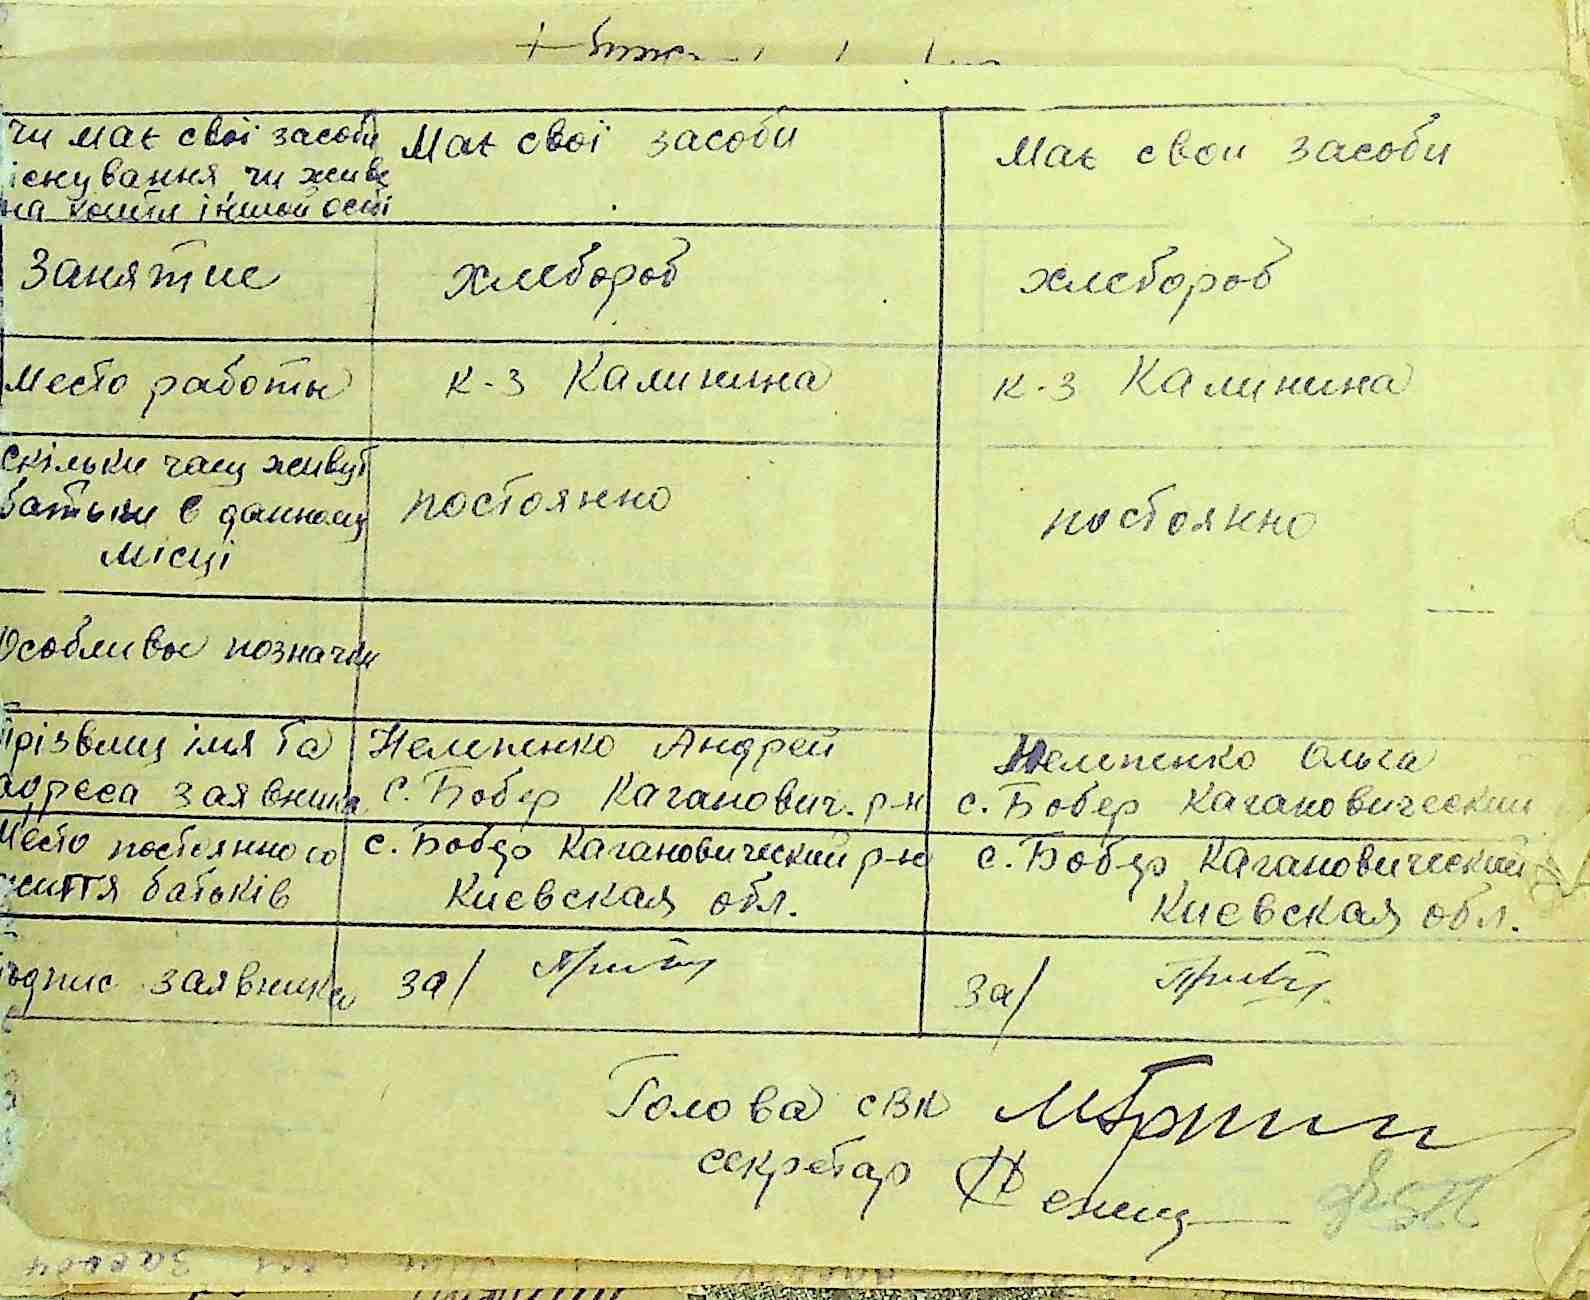 чи має свої засоби
існування, чи живе
на кошти іншой особи
Має свої засоби
Має свои засоби
Занятие
хлебороб
хлебороб
Место работы
к-з Калинина
к-з Калинина
скільки часу живут
батьки в данному
місці
постоянно
постоянно
Особливые позначки
прізвищ імя та
адреса заявника
Нелепенко Андрей
с. Бобер Каганович. р-н
Нелепенко Ольга
с. Бобер Кагановический
Место постоянного
життя батьків
с. Бобер Кагановический р-н
Киевская обл.
с. Бобер Кагановический
Киевская обл.
подпис заявника
за/
за/
Голова СВК
секретар